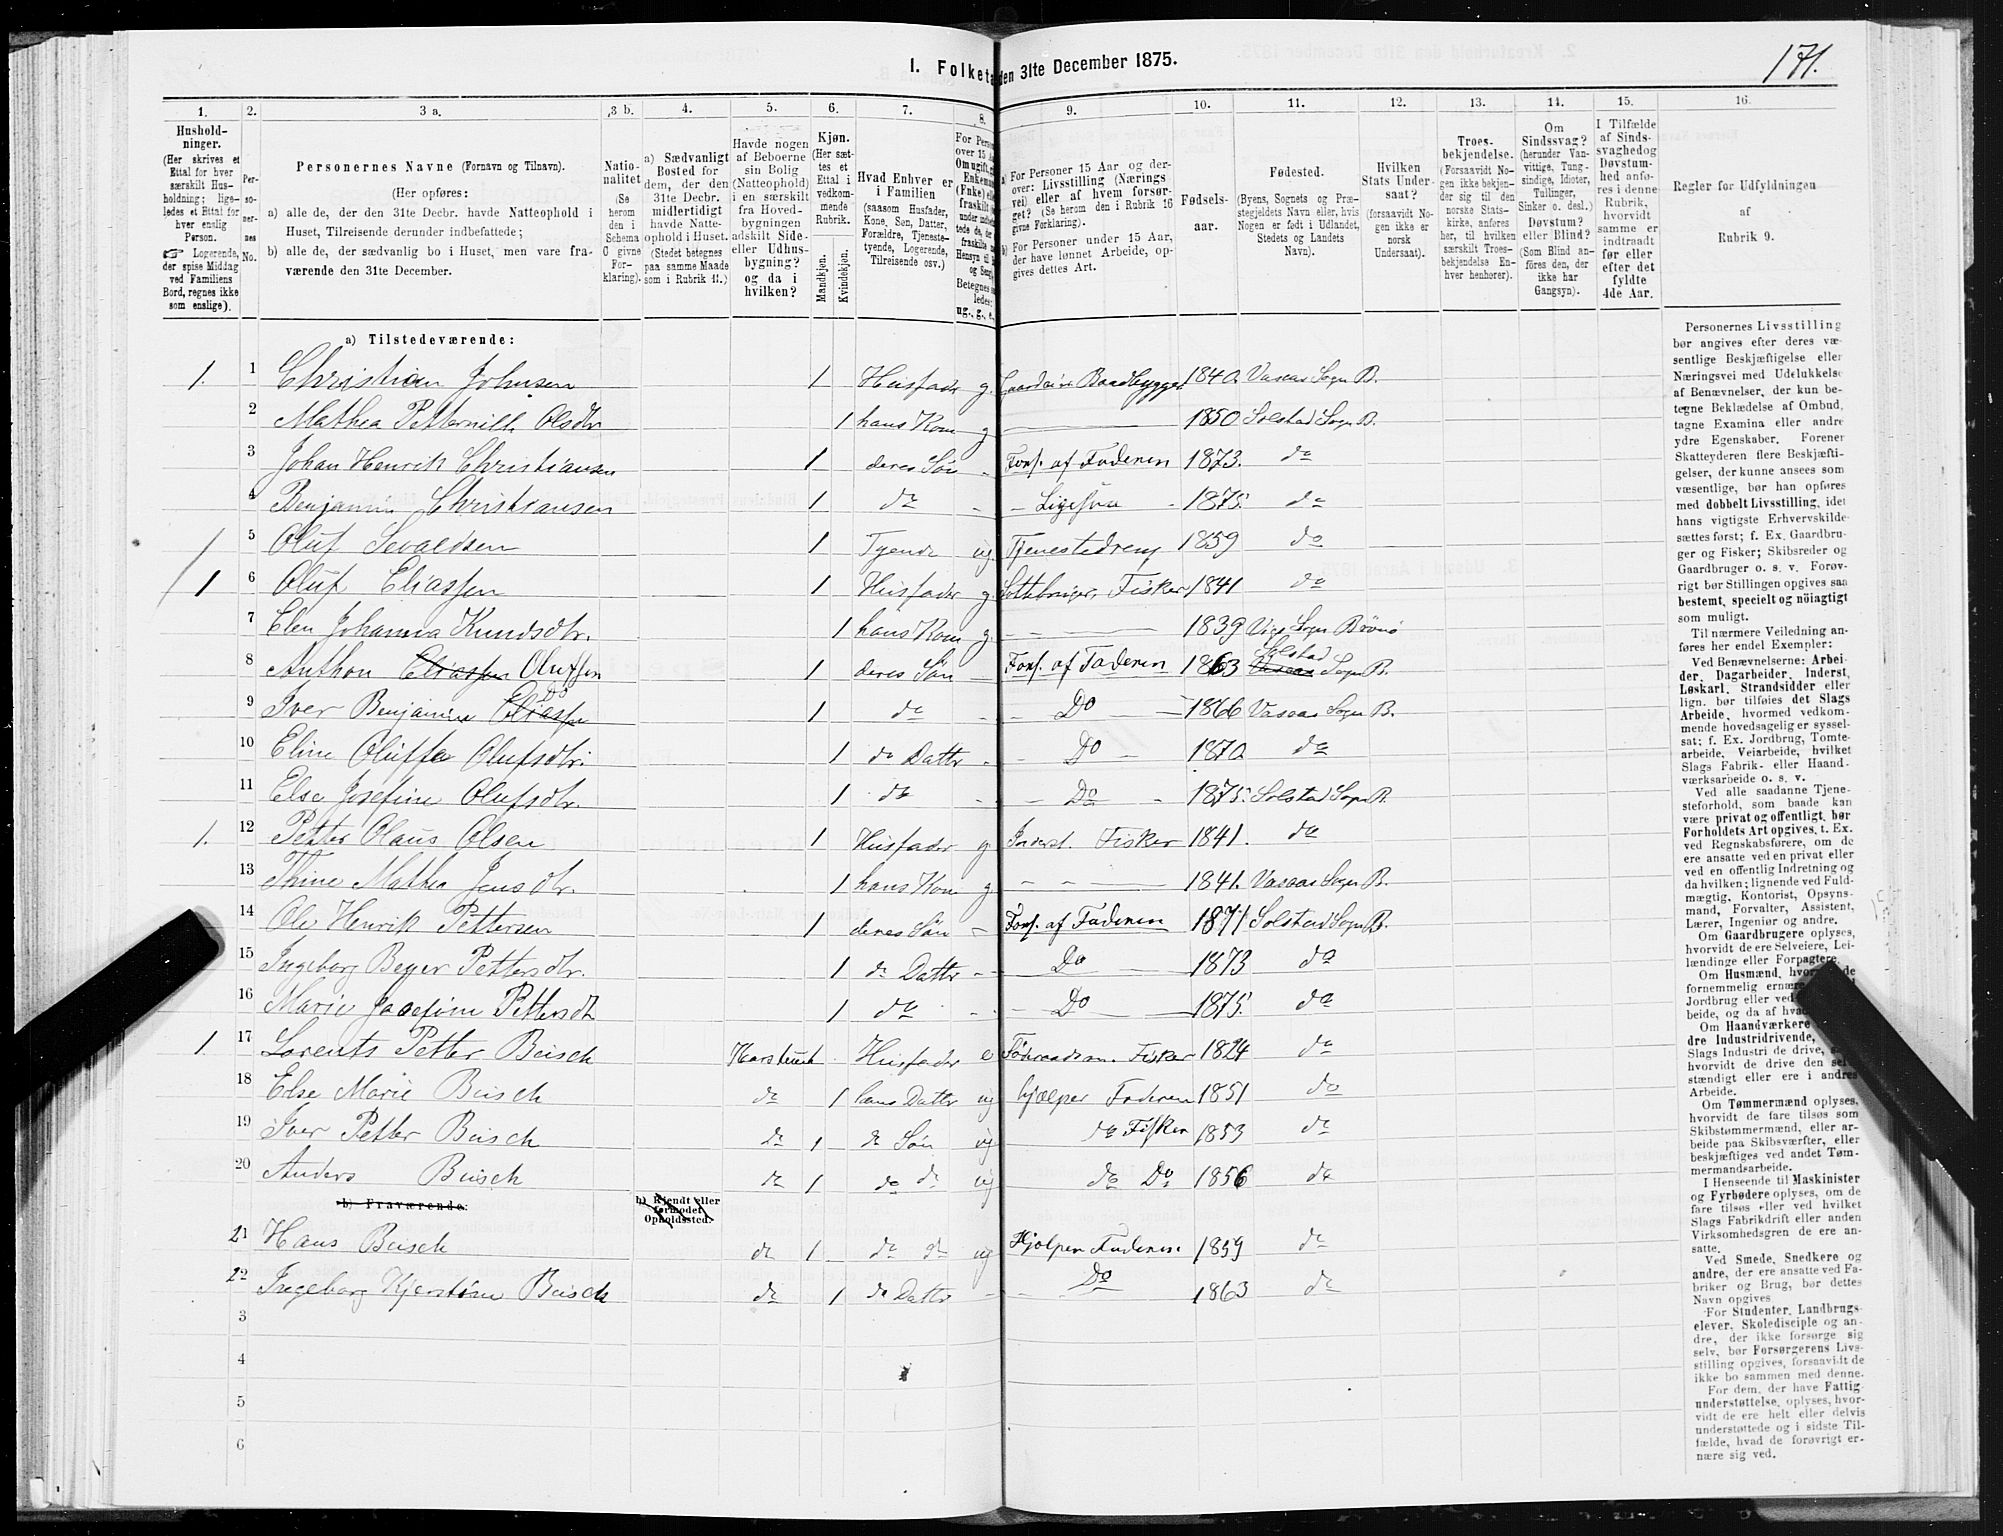 I. Folketa den 31te December 1875.
171.
1. 2. 3 a. 3 b. 4. 5. 6. 7. 8. 9. 10. 11. 12. 13. 14. 15. 16.
Hushold-
ninger.
(Her skrives et
Ettal for hver
særskilt Hus-
holdning; lige-
ledes et Ettal for
hver enslig
Person.
☞ Logerende,
der spise Middag
ved Familiens
Bord, regnes ikke
som enslige).
Per-
so-
ner-
nes
No.
Personernes Navne (Fornavn og Tilnavn).
(Her opføres:
a) alle de, der den 31te Decbr. havde Natteophold i
Huset, Tilreisende derunder indbefattede;
b) alle de, der sædvanlig bo i Huset, men vare fra-
værende den 31te December.
Natio-
nalitet
(Se
herom
den i
Schema
6 givne
For-
klaring).
a) Sædvanligt
Bosted for
dem, der den
31te Decbr.
midlertidigt
havde Natte-
ophold i Huset.
(Stedet betegnes
paa samme Maade
som i Rubrik 11.)
Havde nogen
af Beboerne
sin Bolig
(Natteophold)
i en særskilt
fra Hoved-
bygningen
adskilt Side-
eller Udhus-
bygning?
og da i
hvilken?
Kjøn.
(Her sæt-
tes et
Ettal i
vedkom-
mende
Rubrik.
Mandkjøn.
Kvindekjøn.
Hvad Enhver er
i Familien
(saasom Husfader,
Kone, Søn, Datter,
Forældre, Tjeneste-
tyende, Logerende,
Tilreisende osv.)
For Perso
over 15 A
Om ugift,
Enkem
(Fnke) el
fraskilt
ug., g., e.,
a) For Personer 15 Aar og der-
over: Livsstilling (Nærings-
vei) eller af hvem forsør-
get? (Se herom den i Rubrik 16
givne Forklaring).
b) For Personer under 15 Aar,
der have lønnet Arbeide, op-
gives dettes Art.
Fødsels-
aar.
Fødested.
(Byens, Sognets og Præ-
stegjeldets Navn eller, hvis
Nogen er født i Udlandet,
Stedets og Landets
Navn).
Hvilken
Stats Under-
saat?
(forsaavidt No-
gen ikke er
norsk
Undersaat).
Troes-
bekjendelse.
(Forsaavidt No-
gen ikke bekjen-
der sig til den
norske Stats-
kirke, anføres
her, til hvilken
særskilt Troes-
bekjendelse En-
hver henhører).
Om
Sindssvag?
(herunder Van-
vittige, Tung-
sindige, Idioter,
Tullinger,
Sinker o. desl.)
Døvstum?
eller Blind?
(Som Blind an-
føres den, der
ikke har
Gangsyn).
I Tilfælde
af Sinds-
svaghedog
Døvstum-
hed anfø-
res i denne
Rubrik,
hvorvidt
samme er
indtraadt
før eller
efter det
fyldte
4de Aar.
Regler for Udfyldningen
af
Rubrik 9.
a) Tilstedeværende:
1. 1 Christian Johnsen 1 Husfader g. Gaardeier Baadbygger 1840. Vasaas Sogn B.
2 Mathea Petternille Olsdtr 1 hans Kone g 1850 Solstad Sogn B.
3 Johan Henrik Christiansen 1 deres Søn - Fors. af Faderen 1873. do
4 Benjamin Christiansen 1 do - - Ligesaa - 1875. do
1 5 Oluf Sevaldsen 1 Tyende ug. Tjenestedreng 1859 do
1 6 Oluf Eliassen 1 Husfader g. Fisker 1841 do
7 Elen Johanna Knudsdtr. 1 hans Kone g. 1839 Sogn Brønø
8 Anthon Eliassen Olufsen 1 deres Søn - Fors. af Faderen 1863 Solstad Vasaas Sogn B.
9 Iver Benjamin Eliassen Do 1 do - - Do - 1866 Vasaas Sogn B.
10 Eline Oluffa Olufsdtr. 1 do Datter - - Do - 1870 do
11 Else Josefine Olufsdtr. 1 do - - Do - 1875. Solstad Sogn B.
1. 12 Petter Olaus Olsen 1 Husfader g Inderst. Fisker 1841. do
13 Thine Mathea Jensdtr. 1 hans Kone g - - 1841. Vasaas Sogn B.
14 Ole Henrik Pettersen 1 deres Søn - Fors. af Faderen 1871 Solstad Sogn B.
15 Ingeborg Beyer Pettersdtr. 1 do Datter - - Do - 1873 do
16 Marie Josefine Pettersdtr 1 do - - Do - 1875. do
1. 17 Lorents Petter Busch 1 Husfader e Fisker 1824 do
18 Else Marie Busch do 1 hans Datter ug hjælper Faderen 1851 do
19 Iver Petter Busch do 1 do Søn ug do Fisker 1853 do
20 Anders Busch do 1 do do ug do Do 1856 do
b) Fraværende:
b) Kjendt eller
formodet
Opholdssted.
21 Hans Busch do 1 do do ug Hjelper Faderen 1859 do
22 Ingeborg Kjerstine Busch do 1 do Datter - - Do 1863 do
3
4
5
6
Personernes Livsstilling
bør angives efter deres væ-
sentlige Beskjæftigelse eller
Næringsvei med Udelukkelse
af Benævnelser, der kun be-
tegne Beklædelse af Ombud,
tagne Examina eller andre
ydre Egenskaber. Forener
Skatteyderen flere Beskjæfti-
gelser, der kunne ansees som
væsentlige, bør han opføres
med dobbelt Livsstilling, idet
hans vigtigste Erhvervskilde
sættes først; f. Ex. Gaardbru-
ger og Fisker; Skibsreder og
Gaardbruger o. s. v. Forøv-
rigt bør Stillingen opgives saa
bestemt, specielt og nöiagtigt
som muligt.
Til nærmere Veiledning an-
føres her endel Exempler:
Ved Benævnelserne: Arbei-
der, Dagarbeider, Inderst,
Løskarl, Strandsidder eller
lign. bør tilføies det Slags
Arbeide, hvormed vedkom-
mende hovedsagelig er syssel-
sat; f. Ex. Jordbrug, Tomte-
arbeide, Veiarbeide, hvilket
Slags Fabrik- eller Haand-
værksarbeide o. s. v.
Ved alle saadanne Tjene-
steforhold, som baade kan
være privat og offentligt, bør
Forholdets Art opgives, t. Ex.
ved Regnskabsførere, om de
ere ansatte ved en privat eller
ved en offentlig Indretning og
da hvilken; lignende ved Fuld-
mægtig, Kontorist, Opsyns-
mand, Forvalter, Assistent,
Lærer, Ingeniør og andre.
Om Gaardbrugere oplyses,
hvorvidt de ere Selveiere, Lei-
lændinge eller Forpagtere.
Om Husmænd, hvor de
fornemmelig ernære
Jordbrug eller ved
beide, og da af hva
Om Haandværkere
dre Industridrivende,
Slags Industri de drive,
hvorvidt de drive den sel
stændigt eller ere i andres
Arbeide.
Om Tømmermænd oplyses,
hvorvidt de fare tilsøs som
Skibstømmermænd, eller ar-
beide paa Skibsværfter, eller
beskjæftiges ved andet Tøm-
mermandsarbeide.
I Henseende til Maskinister
og Fyrbødere oplyses, om de
fare tilsøs eller ved hvilket
Slags Fabrikdrift eller anden
Virksomhedsgren de ere an-
satte.
Ved Smede, Snedkere og
andre, der ere ansatte ved Fa-
briker og Brug, bør dettes
Navn opgives
For Studenter, Landbrugs-
elever, Skoledisciple og an-
dre, der ikke forsørge sig
selv, bør Forsørgerens Livs-
stilling opgives, forsaavidt de
ikke bo sammen med denne.
For dem, der have Fattig-
understøttelse, oplyses, hvor-
vidt de ere helt eller delvis
understøttede og i sidste Til-
fælde, hvad de forøvrigt er-
nære sig ved.